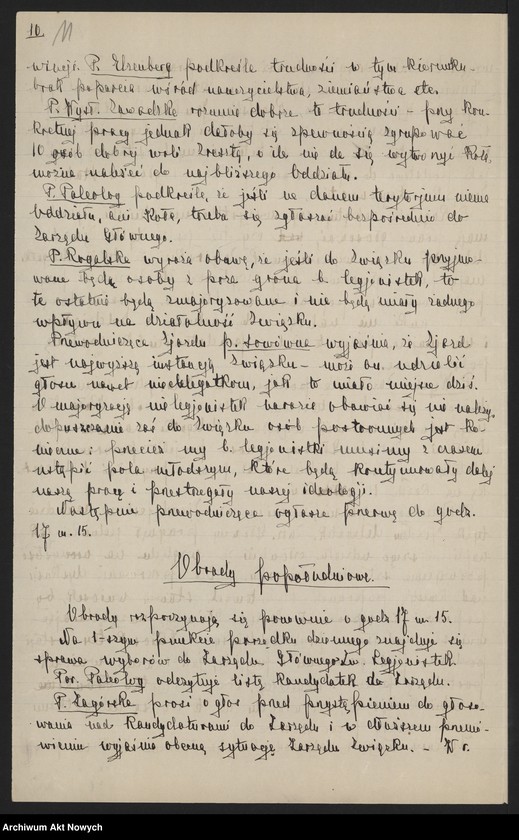 10. 11
wizacji. P. Elzenberg podkreśla trudności w tym kierunku –
brak poparcia wśród nauczycielstwa, ziemiaństwa etc.
P. Wył. Zawadzka rozumie dobrze te trudności – przy kon-
kretnej pracy jednak dałoby się z pewnością zgrupować
10 osób dobrej woli. Zresztą, o ile nie da się wytworzyć Koła,
można należeć do najbliższego Oddziału.
P. Paleolog podkreśla, że jeśli na danem terytorjum niema
Oddziału, ani Koła, trzeba się zgłaszać bezpośrednio do
Zarządu Głównego.
P. Rogalska wyraża obawę, że jeśli do Związku przyjmo-
wane będą osoby z poza grona b. legjonistek, to
te ostatnie będą zmajoryzowane i nie będą miały żadnego
wpływu na działalność Związku.
Przewodnicząca Zjazdu p. Sowówna wyjaśnia, że Zjazd
jest najwyższą instancją Związku – może on udzielić
głosu nawet niedelegatkom, jak to miało miejsce dziś.
O majoryzację nielegjonistek narazie obawiać się nie należy,
dopuszczanie zaś do Związku osób postronnych jest ko-
nieczne: przecież my b. legjonistki musimy z czasem
ustąpić pola młodszym, które będą kontynuowały dalej
naszą pracę i przestrzegały naszej ideologji.
Następnie przewodnicząca ogłasza przerwę do godz.
17 m. 15.
Obrady popołudniowe.
Obrady rozpoczynają się ponownie o godz 17 m. 15.
Na 1-szym punkcie porządku dziennego znajduje się
sprawa wyborów do Zarządu Głównego Zw. Legjonistek.
Por. Paleolog odczytuje listę kandydatek do Zarządu.
P. Zagórska prosi o głos przed przystąpieniem do głoso-
wania nad kandydaturami do Zarządu i w dłuższem przemó-
wieniu wyjaśnia obecną sytuację Zarządu Związku. – W r.
Archiwum Akt Nowych